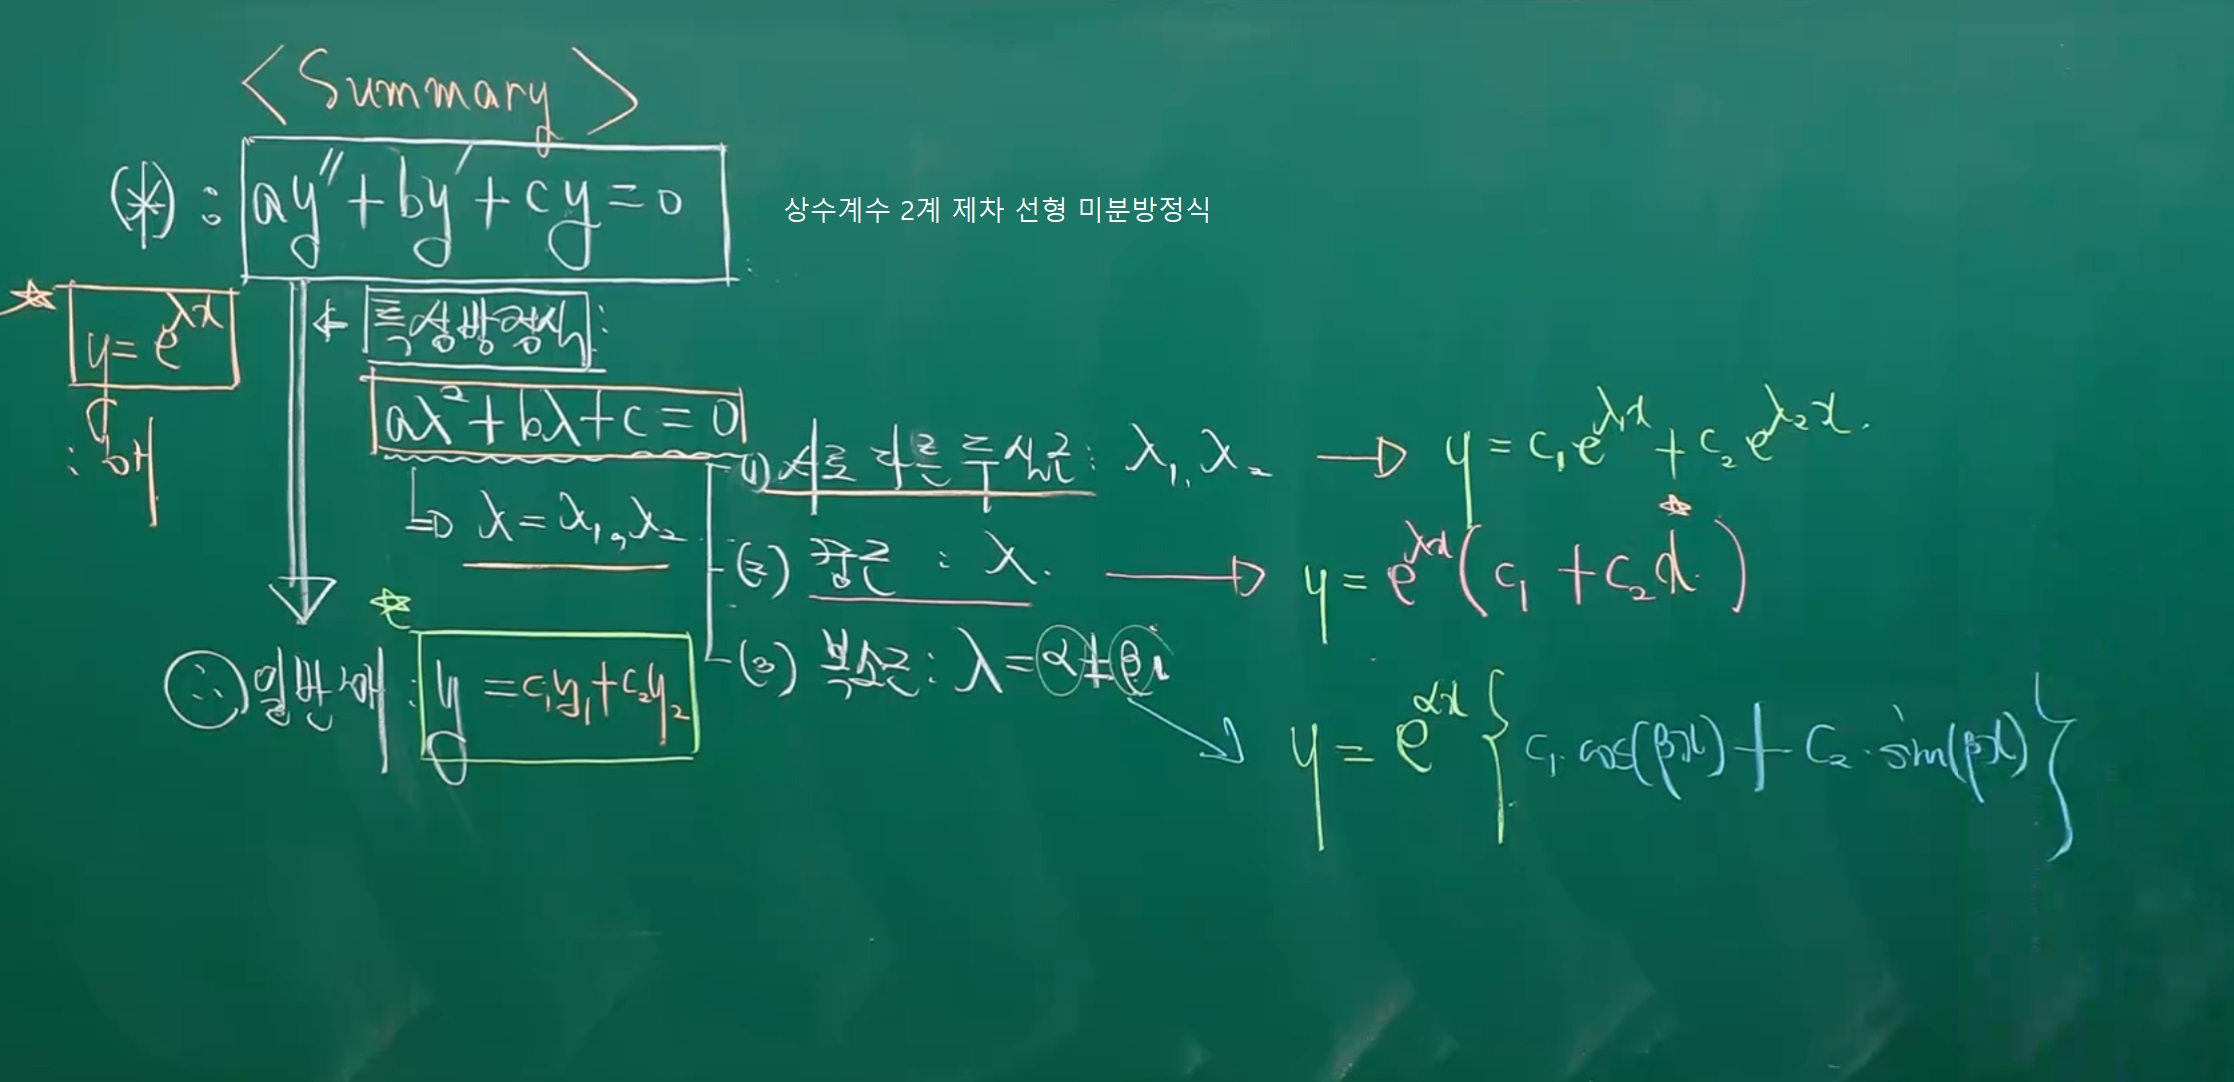 <Summary>
(*) : ay″ + by′ + cy = 0
상수계수 2계 제차 선형 미분방정식
☆ y = e^{λx}
: 해
← 특성방정식 :
aλ² + bλ + c = 0
⇒ λ = λ₁, λ₂
(1) 서로 다른 두 실근 : λ₁, λ₂ → y = c₁e^{λ₁x} + c₂e^{λ₂x}.
(2) 중근 : λ. → y = e^{λx}(c₁ + c₂x) ☆
(3) 복소근 : λ = α ± βi
→ y = e^{αx}{c₁·cos(βx) + c₂·sin(βx)}
☆
∴ 일반해 : y = c₁y₁ + c₂y₂